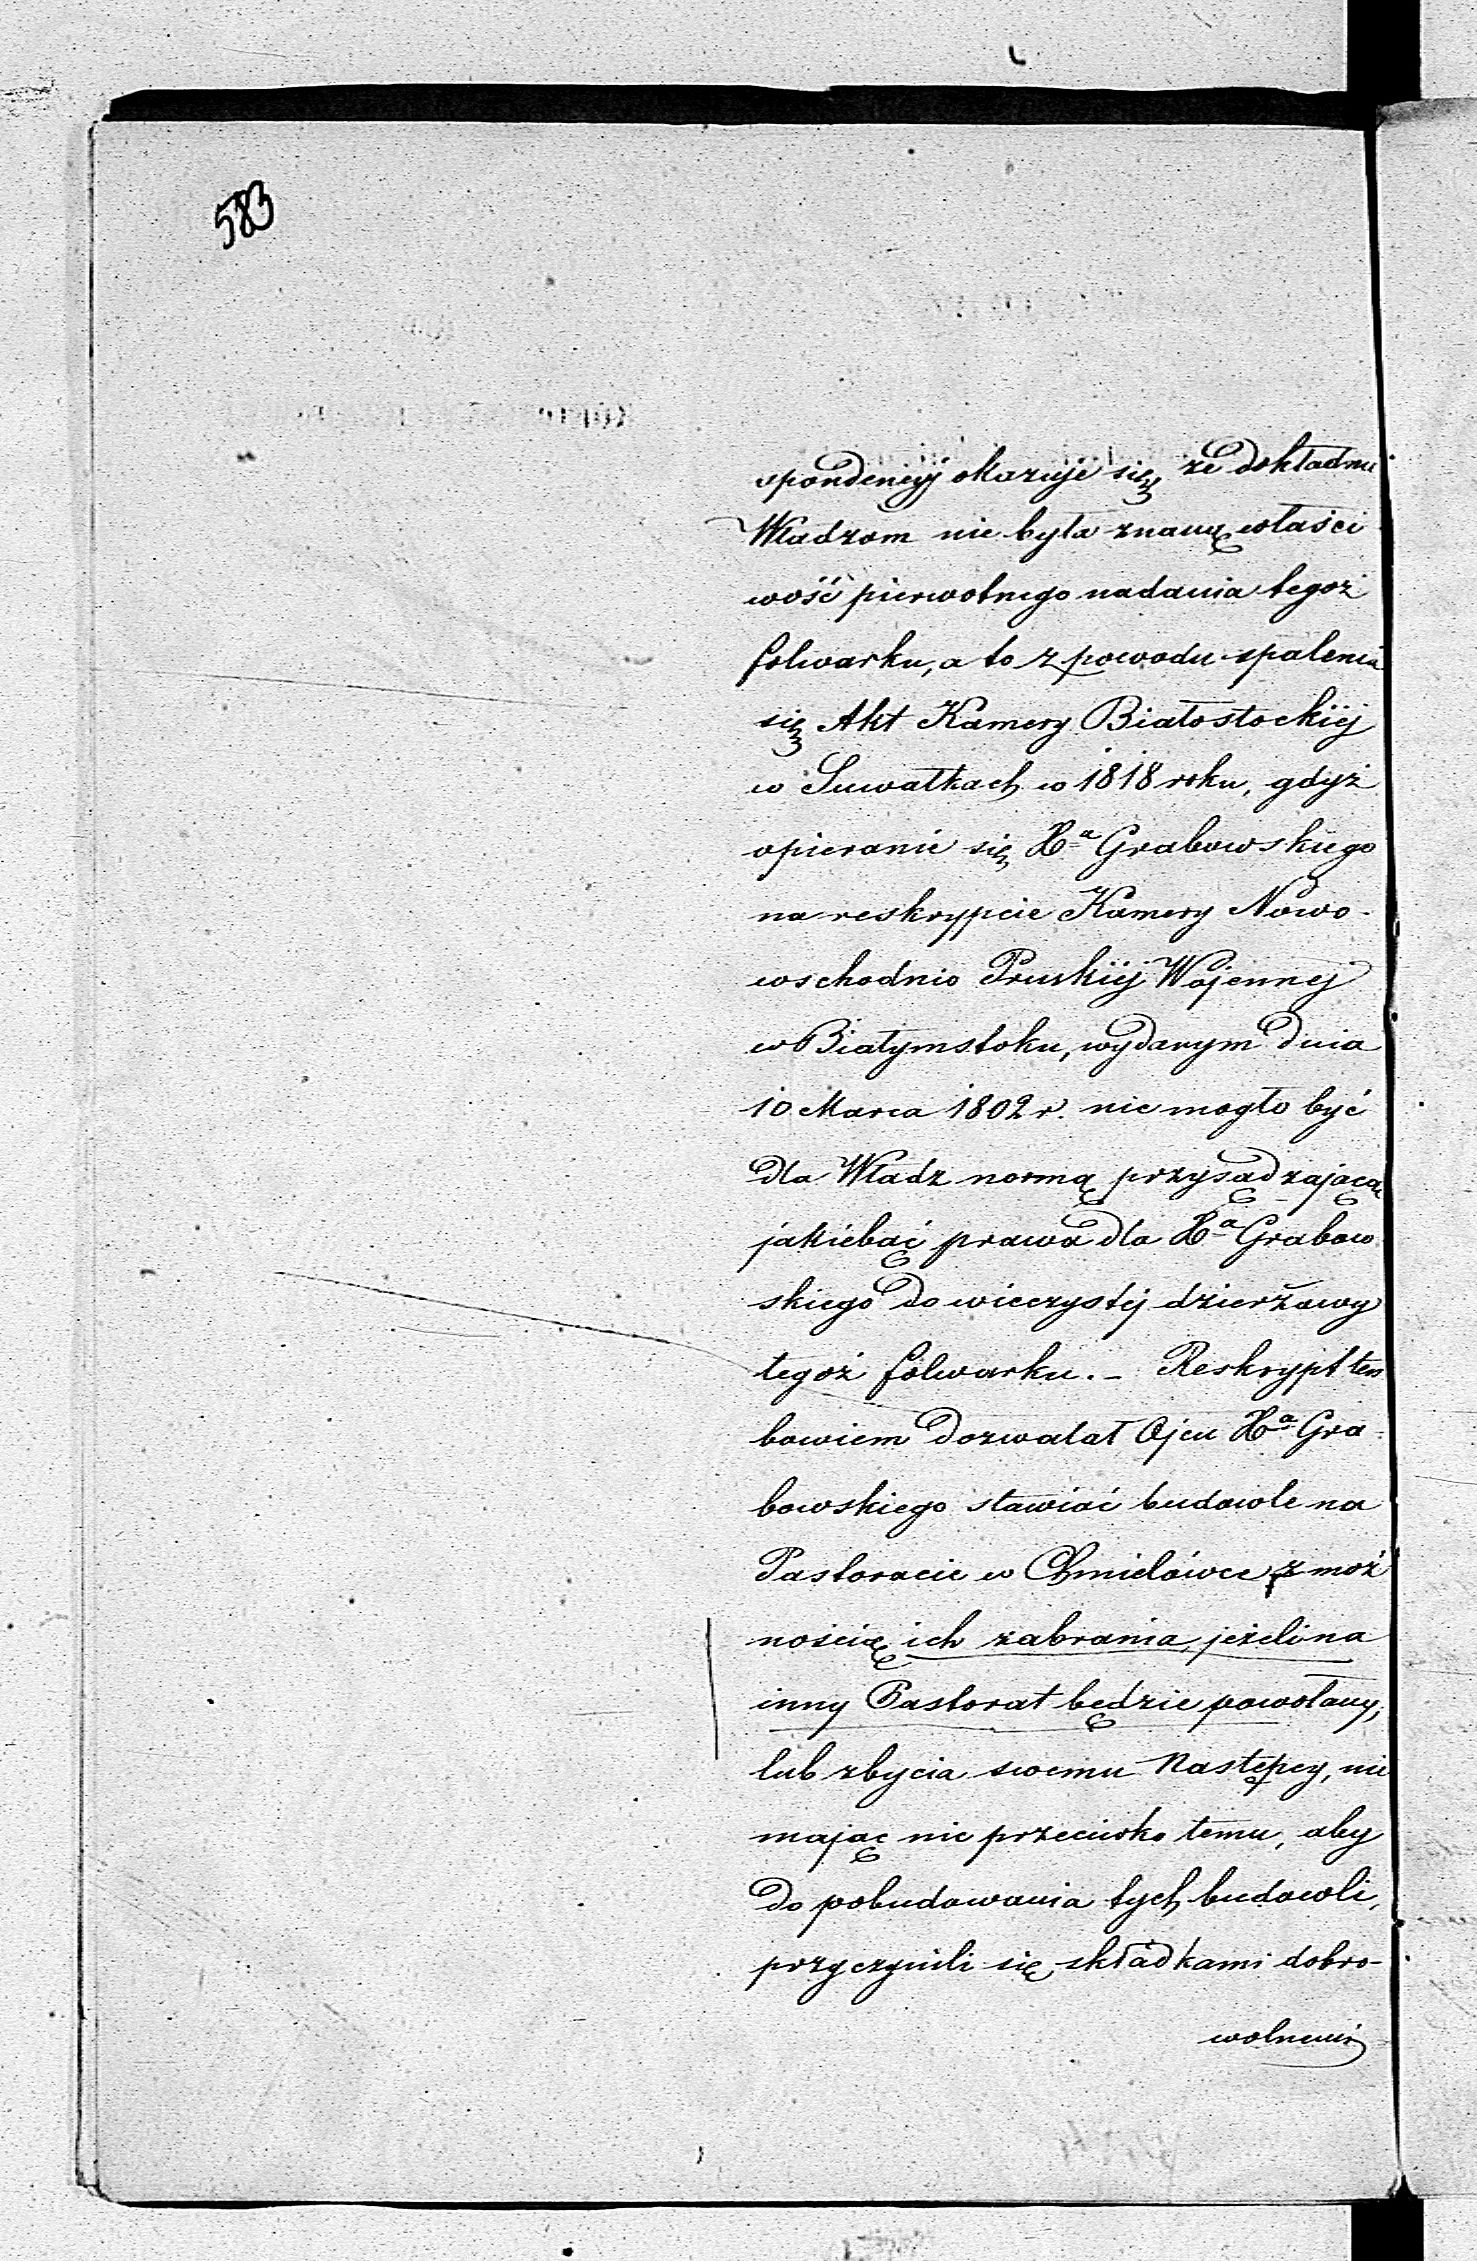 583
spondencyj okazuje się, że dokładnie
Władzom nie była znaną właści-
wość pierwotnego nadania tegoż
folwarku, a to z powodu spalenia
się Akt Kamery Białostockiéj
w Suwałkach w 1818 roku, gdyż
opieranie się Xa Grabowskiego
na reskrypcie Kamery Nowo-
wschodnio Pruskiéj Wojennej
w Białymstoku, wydanym dnia
10 Marca 1802 r. nie mogło być
dla Władz normą przysądzającą
jakiebąć prawa dla Xa Grabow
skiego do wieczystéj dzierżawy
tegoż folwarku. – Reskrypt ten
bowiem dozwalał Ojcu Xa Gra-
bowskiego stawiać budowle na
Pastoracie w Chmielówce z moż
nością ich zabrania, jeżeli na
inny Pastorat będzie powołany,
lub zbycia swemu Następcy, nie
mając nic przeciwko temu, aby
do pobudowania tych budowli,
przyczynili się składkami dobro-
wolnemi